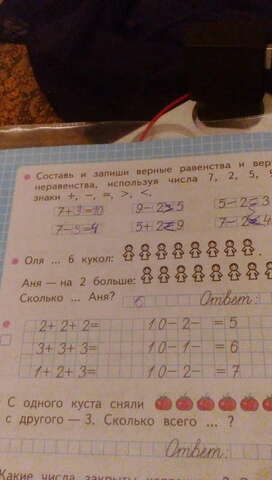 Составь и запиши верные равенства и
неравенства, используя числа 7, 2, 5,
знаки +, –, =, >, <.
7+3=10 9–2>5 5–2=3
7–3=4 5+2<9 7–2
Оля ... 6 кукол:
Аня — на 2 больше:
Сколько ... Аня? Ответ:
2+2+2= 10–2– =5
3+3+3= 10–1– =6
1+2+3= 10–2– =7
С одного куста сняли
с другого — 3. Сколько всего ... ?
Ответ:
Какие числа закрыты